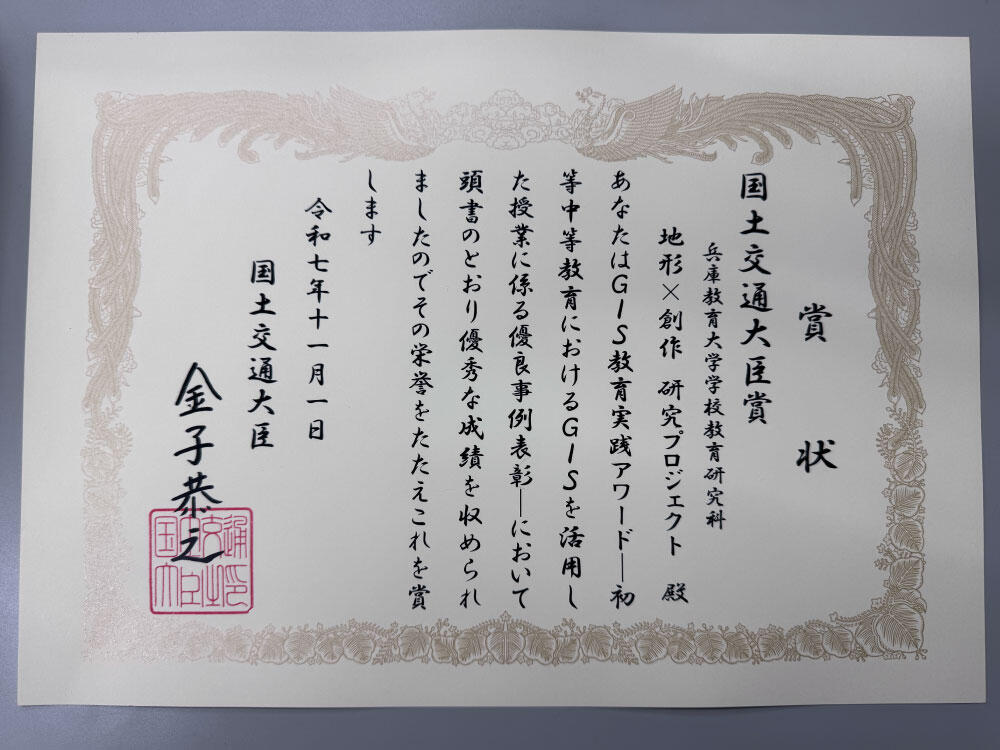 賞状
国土交通大臣賞
兵庫教育大学学校教育研究科
地形×創作 研究プロジェクト 殿
あなたはGIS教育実践アワード―初
等中等教育におけるGISを活用し
た授業に係る優良事例表彰―において
頭書のとおり優秀な成績を収められ
ましたのでその栄誉をたたえこれを賞
します
令和七年十一月一日
国土交通大臣
金子恭之
国土交通大臣之印